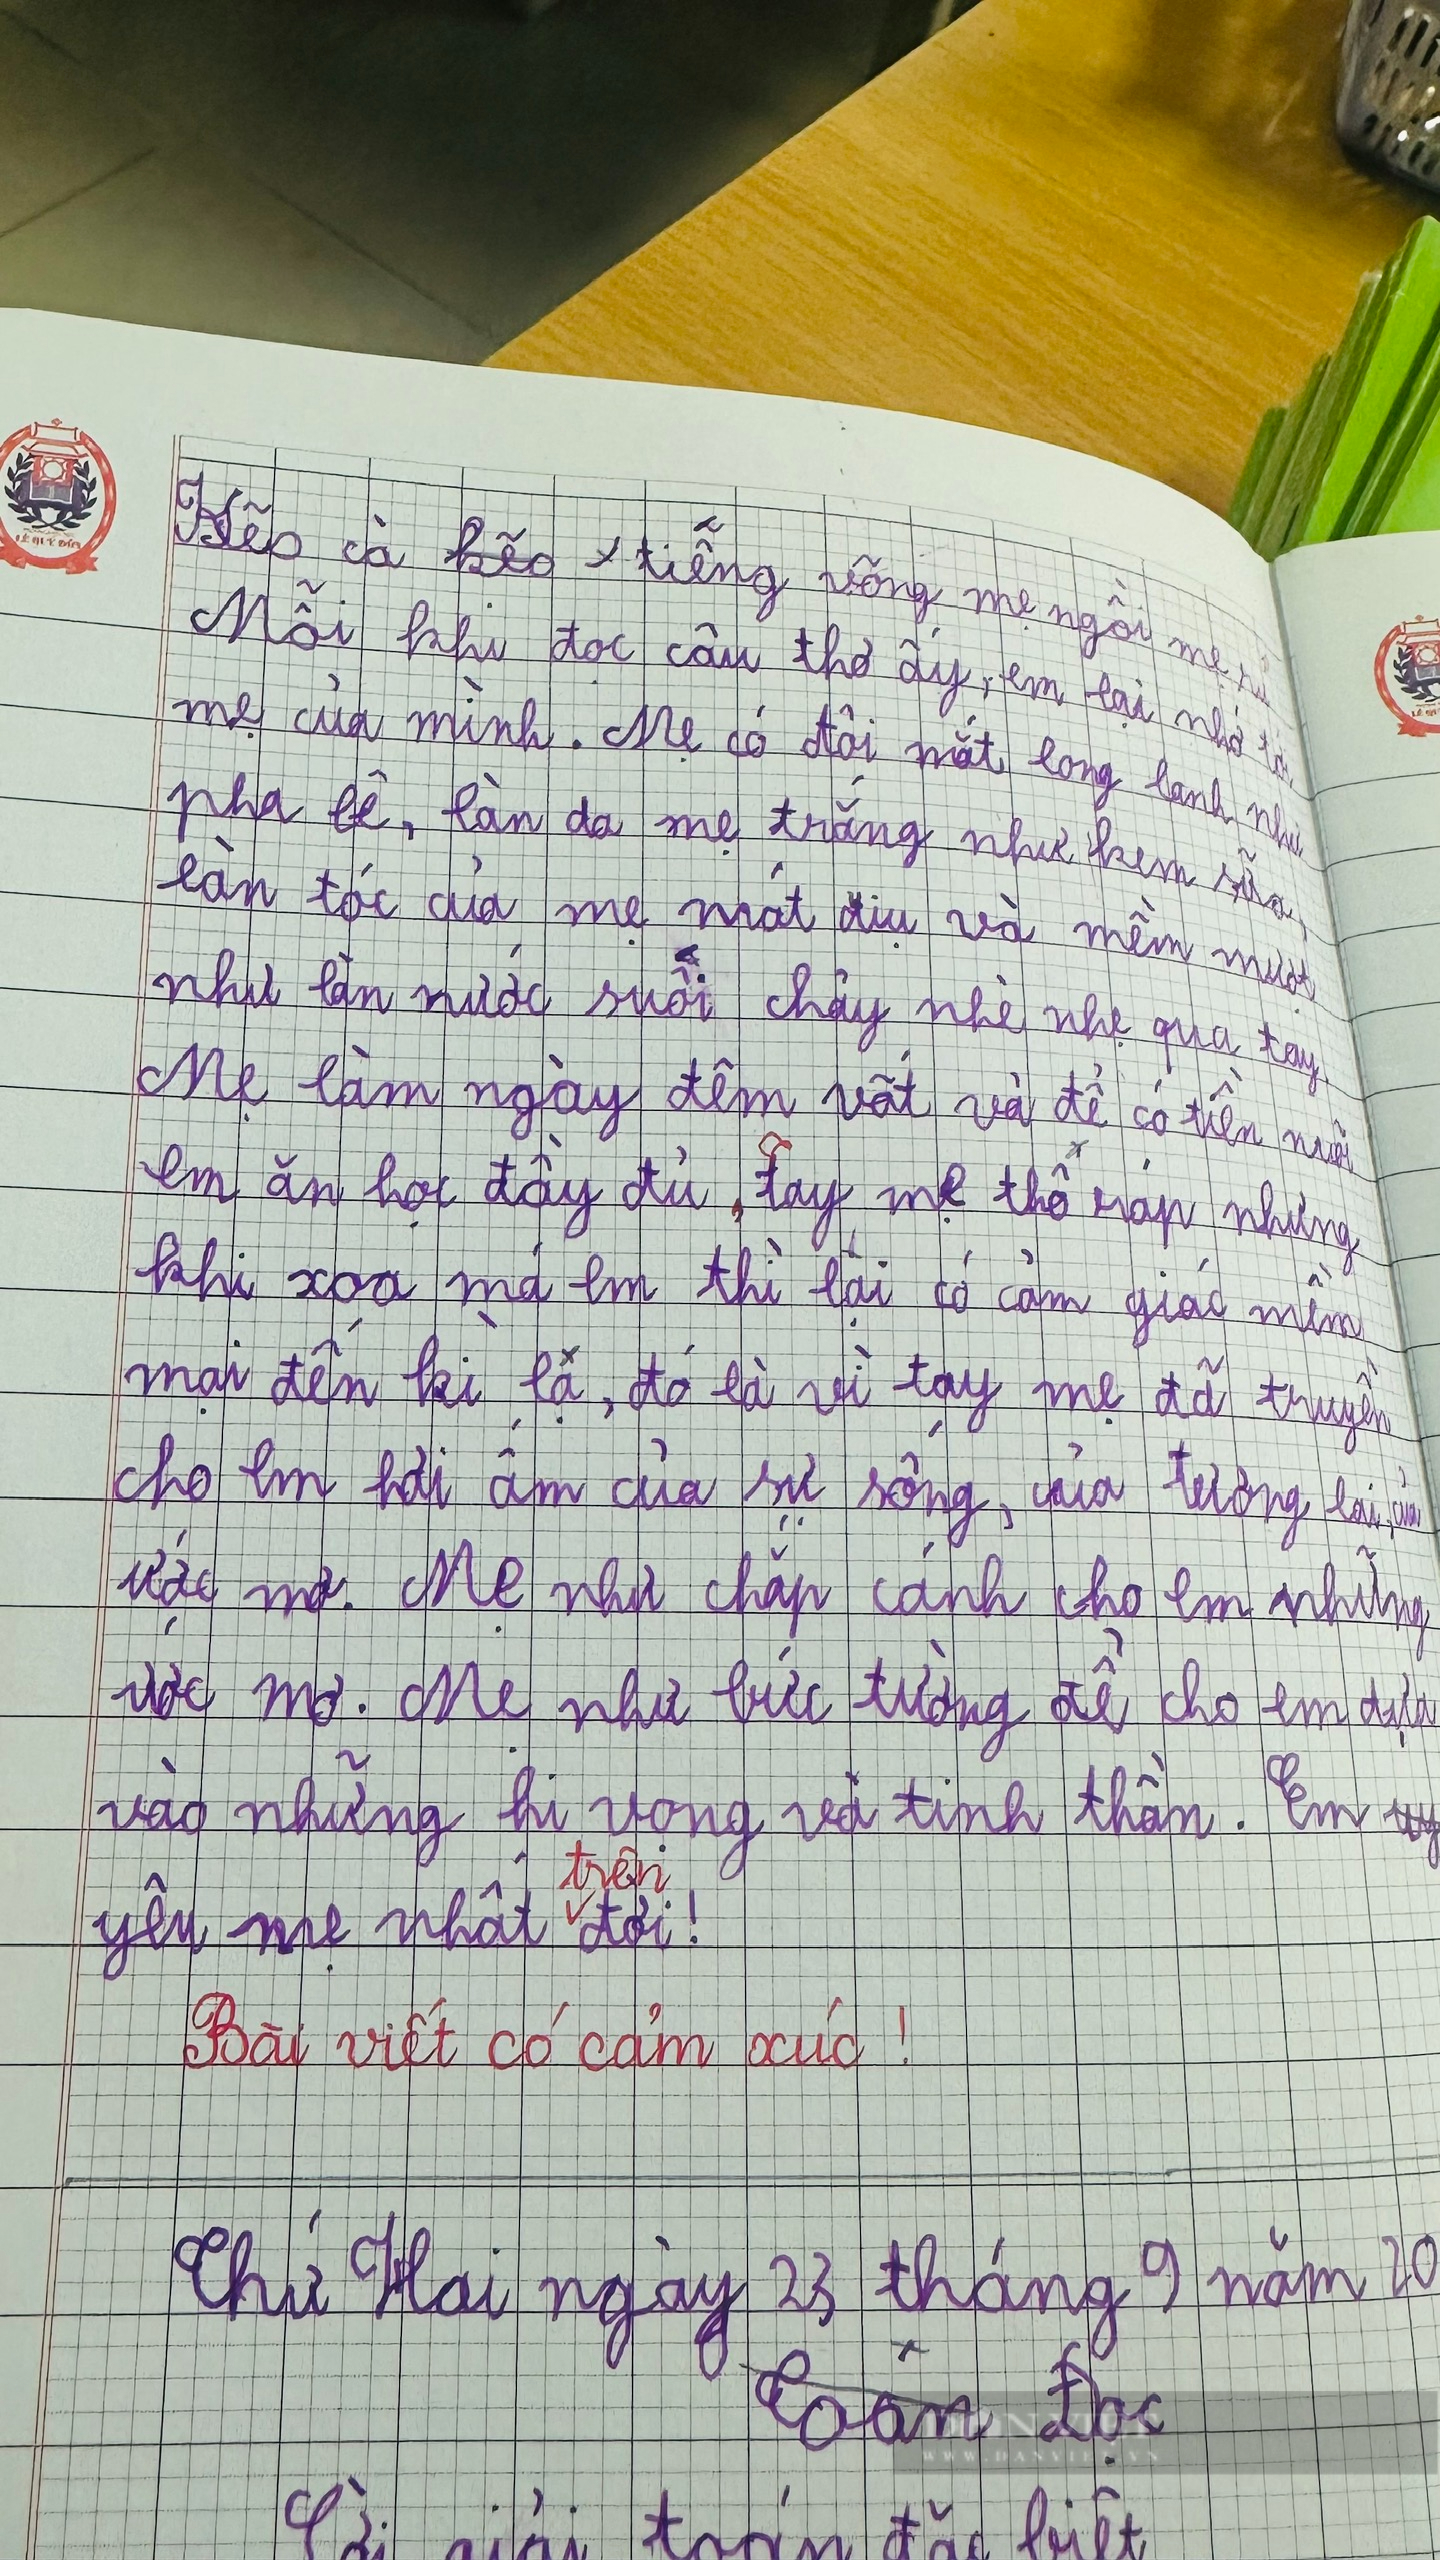 Kẽo cà kẽo tiếng võng mẹ ngồi mẹ ru
Mỗi khi đọc câu thơ ấy, em lại nhớ tới
mẹ của mình. Mẹ có đôi mắt long lanh như
pha lê, làn da mẹ trắng như kem sữa,
làn tóc của mẹ mát dịu và mềm mượt
như làn nước suối chảy nhè nhẹ qua tay.
Mẹ làm ngày đêm vất vả để có tiền nuôi
em ăn học đầy đủ, tay mẹ thô ráp nhưng
khi xoa má em thì lại có cảm giác mềm
mại đến kì lạ, đó là vì tay mẹ đã truyền
cho em hơi ấm của sự sống, của tương lai, của
ước mơ. Mẹ như chắp cánh cho em những
ước mơ. Mẹ như bức tường để cho em dựa
vào những hi vọng và tinh thần. Em
yêu mẹ nhất trên đời!
Bài viết có cảm xúc!
Thứ Hai ngày 23 tháng 9 năm 20
Toán Đọc
WWW.DANVIET.VN
giải toán đặc biệt